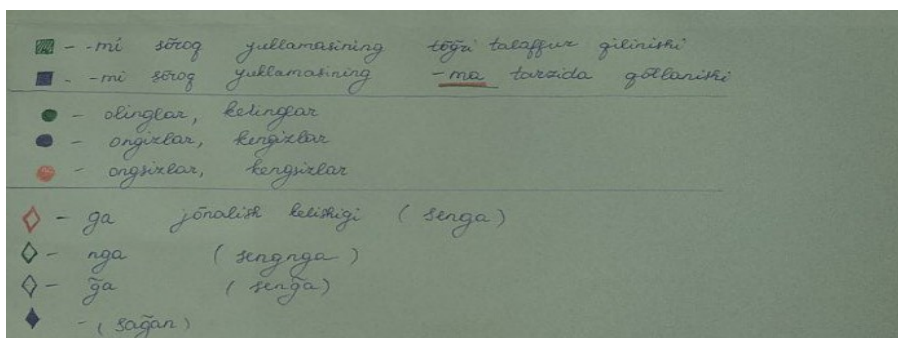 - -mi sõroq yuklamasining tõg̃ri talaffuz qilinishi
- -mi sõroq yuklamasining -ma tarzida qõllanishi
- olinglar, kelinglar
- ongizlar, kengizlar
- ongsizlar, kengsizlar
- ga jõnalish kelishigi (senga)
- nga (sengnga)
- g̃a (seng̃a)
- (sag̃an)